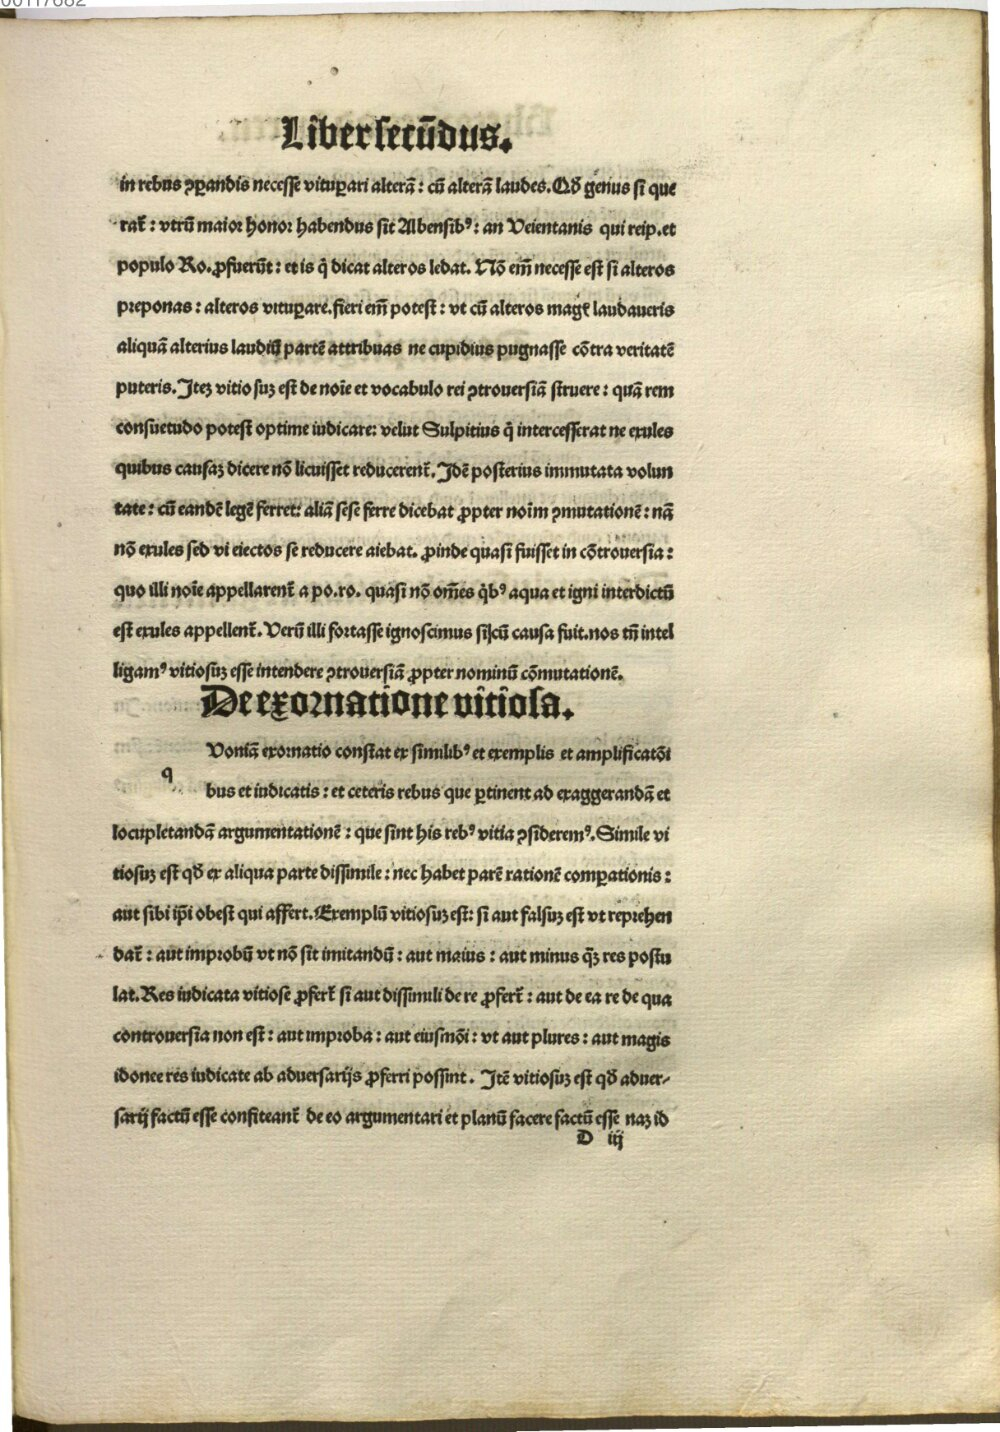 00117682
Liber secūdus.
in rebus ꝯꝑandis necesse vituꝑari alterā: cū alterā laudes. Qd̄ genus si que
rat̄: vtrū maior honor habendus sit Albensibꝰ: an Veientanis qui reip. et
populo Ro. ꝓfuerūt: et is q̇ dicat alteros ledat. Nō em̄ necesse est si alteros
preponas: alteros vituꝑare. fieri em̄ potest: vt cū alteros mag laudaueris
aliquā alterius laudiū partē attribuas ne cupidius pugnasse cōtra veritatē
puteris. Iteꝫ vitiosuꝫ est de noīe et vocabulo rei ꝯtrouersiā struere: quā rem
consuetudo potest optime iudicare: velut Sulpitius q̇ intercesserat ne exules
quibus causaꝫ dicere nō licuisset reducerent̄. Idē posterius immutata volun
tate: cū eandē legē ferret: aliā sese ferre dicebat ꝓpter noīm ꝯmutationē: nā
nō exules sed vi eiectos se reducere aiebat. ꝓinde quasi fuisset in cōtrouersia:
quo illi noīe appellarent̄ a po. ro. quasi nō om̄es q̇bꝰ aqua et igni interdictū
est exules appellent̄. Verū illi fortasse ignoscimus si cū causa fuit. nos tn̄ intel
ligamꝰ vitiosuꝫ esse intendere ꝯtrouersiā ꝓpter nominū cōmutationē.
De exornatione vitiosa.
q
Voniā exornatio constat ex similibꝰ et exemplis et amplificatōi
bus et iudicatis: et ceteris rebus que ꝑtinent ad exaggerandā et
locupletandā argumentationē: que sint his rebꝰ vitia ꝯsideremꝰ. Simile vi
tiosuꝫ est qd̄ ex aliqua parte dissimile: nec habet parē rationē comꝑationis:
aut sibi ip̄i obest qui affert. Exemplū vitiosuꝫ est: si aut falsuꝫ est vt reprehen
dat̄: aut improbū vt nō sit imitandū: aut maius: aut minus q̄ꝫ res postu
lat. Res iudicata vitiose ꝓfert̄ si aut dissimili de re ꝓfert̄: aut de ea re de qua
controuersia non est: aut improba: aut eiusmōi: vt aut plures: aut magis
idonee res iudicate ab aduersarijs ꝓferri possint. Itē vitiosuꝫ est qd̄ aduer⸗
sarij factū esse confiteant̄ de eo argumentari et planū facere factū esse naꝫ id
D iij